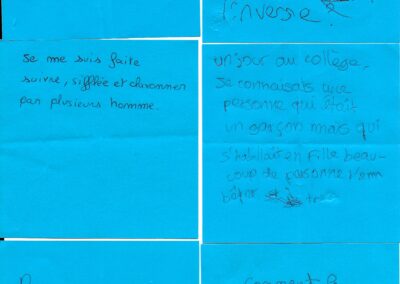 l'inverse ?
Je me suis faite
suivre, sifflée et
par plusieurs homme.
un jour au collège.
Je connaissais une
personne qui était
un garçon mais qui
s'habillait en fille beau-
coup de personne
comment